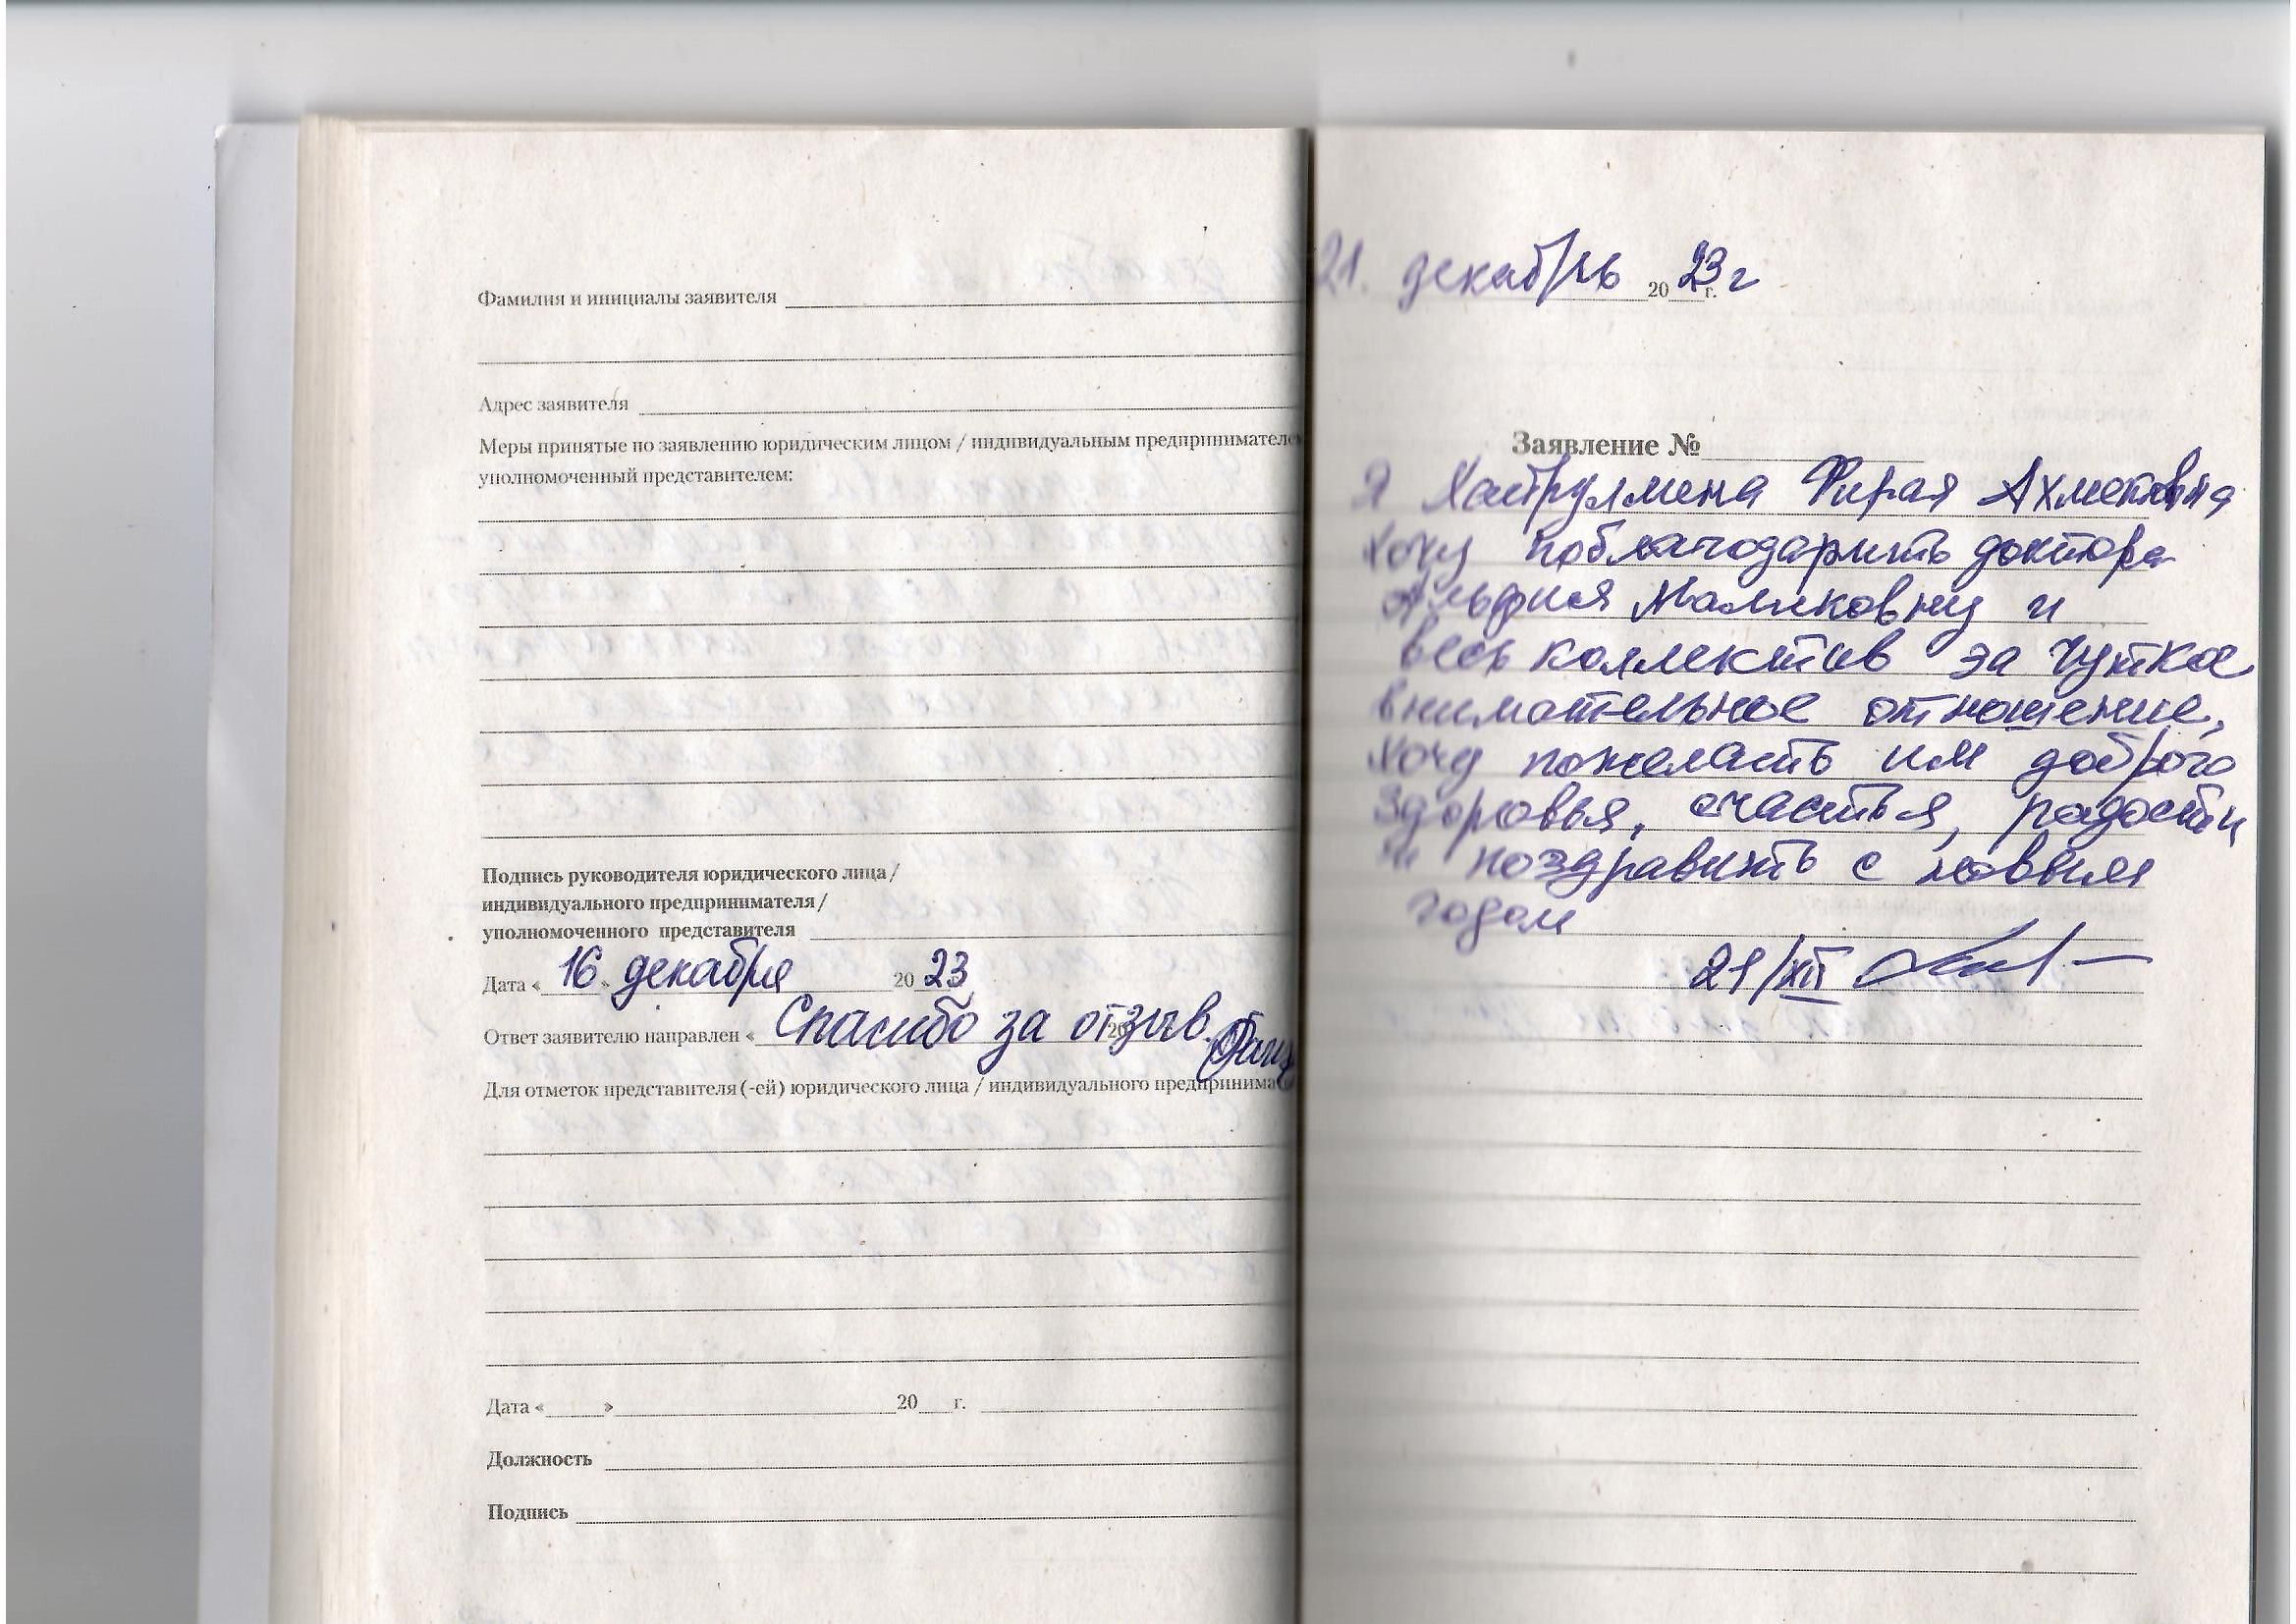 Фамилия и инициалы заявителя
Адрес заявителя
Меры принятые по заявлению юридическим лицом / индивидуальным предпринимателе
уполномоченный представителем:
Подпись руководителя юридического лица /
индивидуального предпринимателя /
уполномоченного представителя
Дата « 16 » декабря 20 23
Ответ заявителю направлен « Спасибо за отзыв.
Для отметок представителя (-ей) юридического лица / индивидуального предпринима
Дата « » 20 г.
Должность
Подпись
21. декабрь 20 23 г. г
Заявление №
Я Фирая
хочу поблагодарить доктора
Маликовну и
весь коллектив за чуткое
внимательное отношение,
хочу пожелать им доброго
здоровья, счастья, радости
и поздравить с новым
годом
21/XII